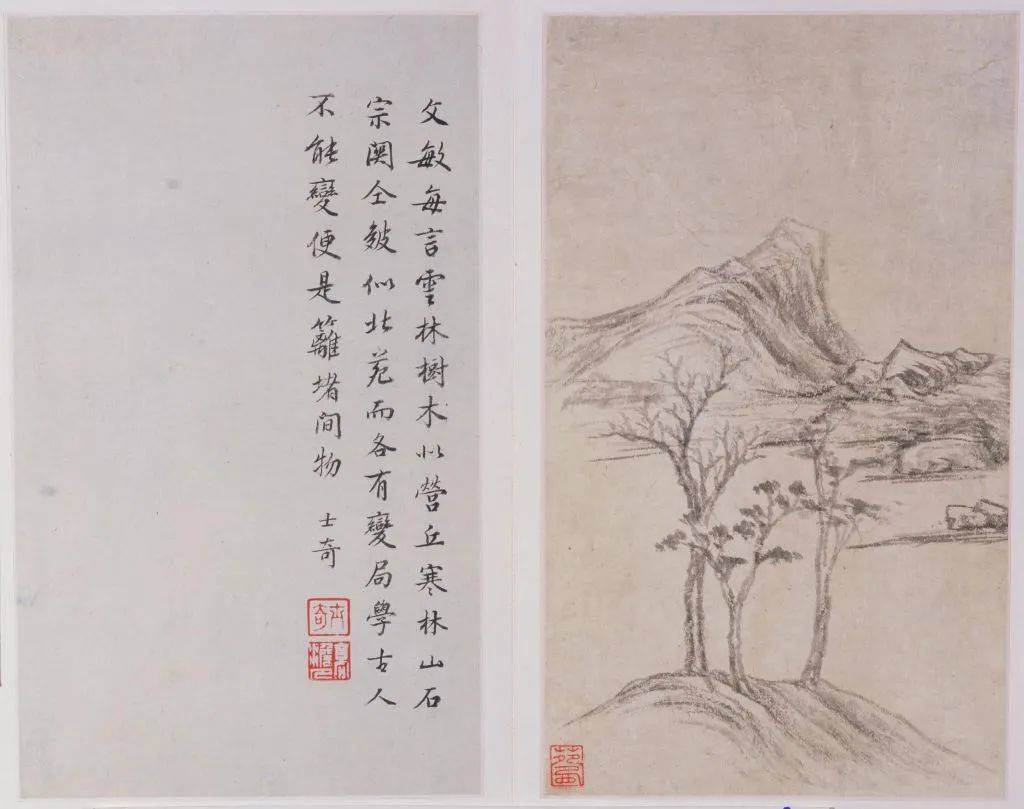 文敏每言雲林樹木似營丘寒林山石
宗關仝皴似北苑而各有變局學古人
不能變便是籬堵間物
士奇
士奇